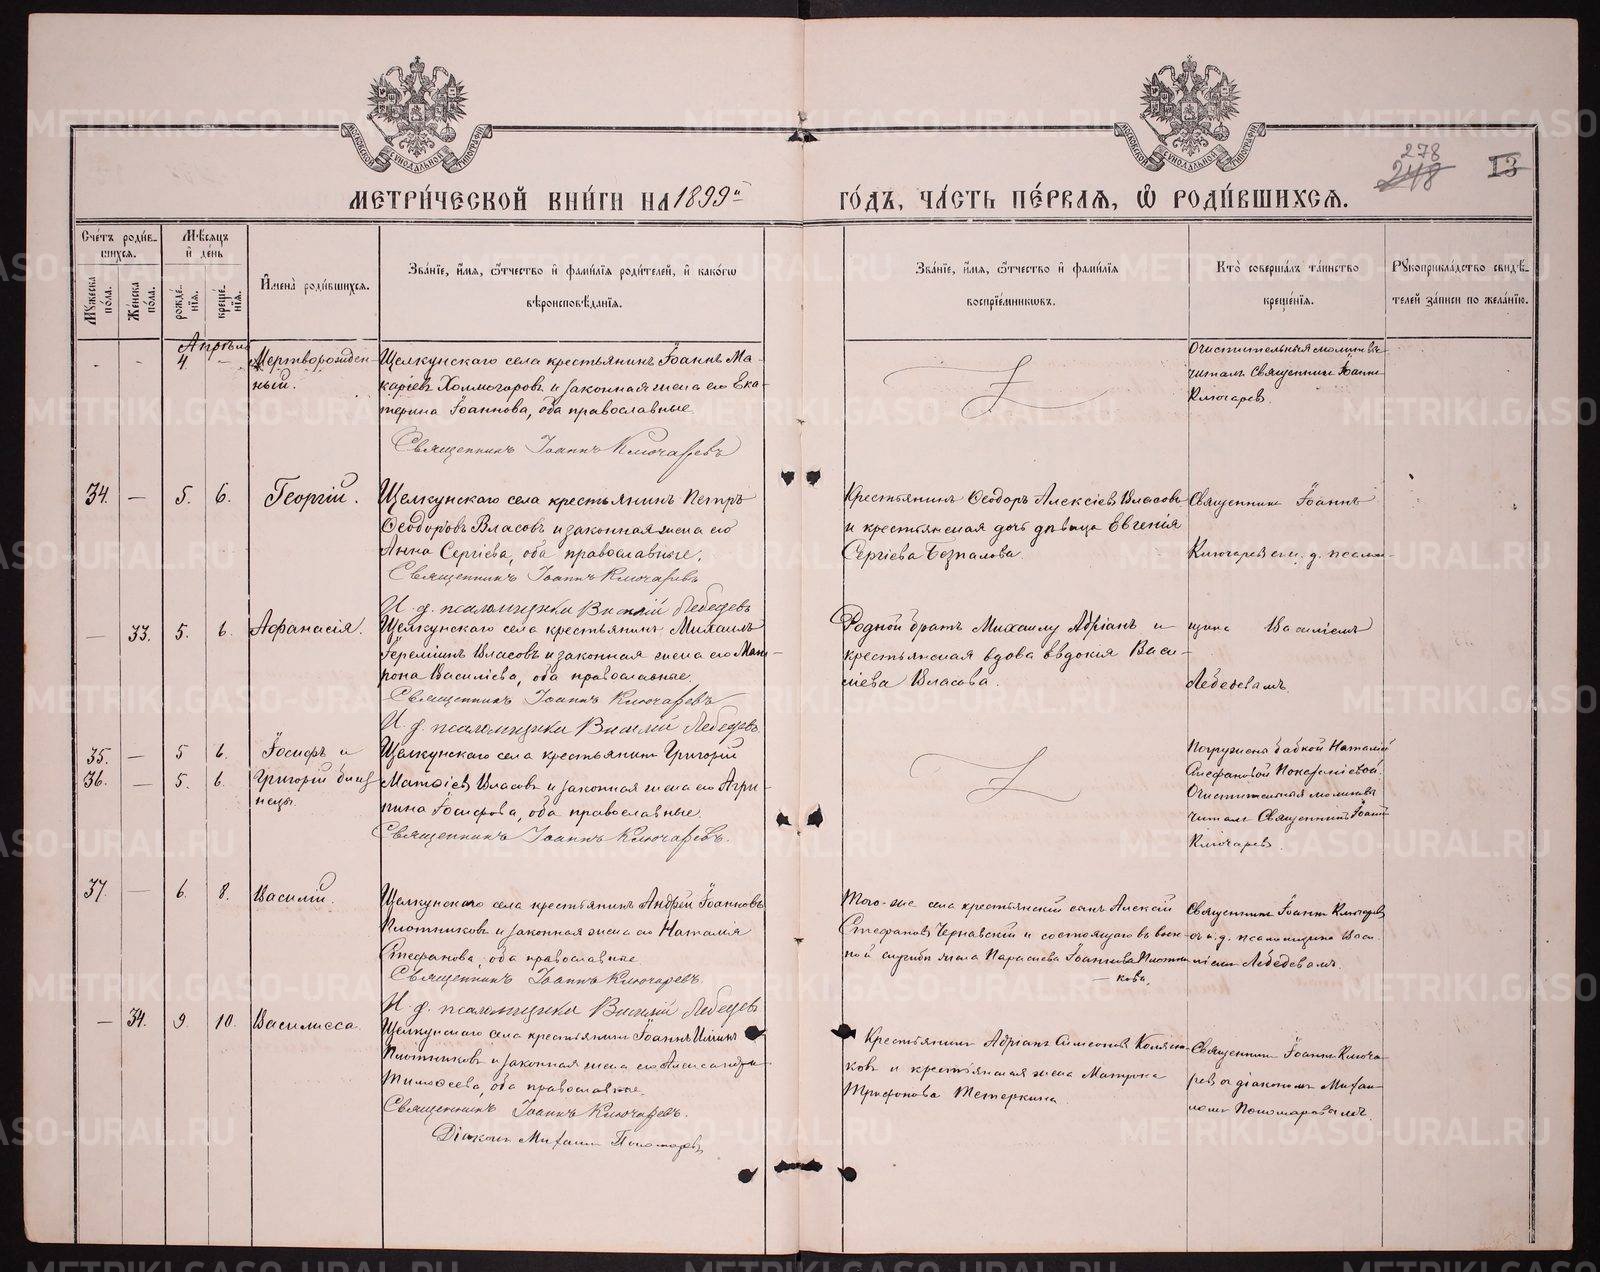 МЕТРИ́ЧЕСКОЙ КНИ́ГИ НА 1899й ГО́ДЪ, ЧА́СТЬ ПЕ́РВАЯ, Ѡ РОДИ́ВШИХСЯ.
278
248
13
МОСКОВСКОЙ СѴНОДАЛЬНОЙ ТИПОГРАФІИ
МОСКОВСКОЙ СѴНОДАЛЬНОЙ ТИПОГРАФІИ
Сче́тъ роди́в-
шихся.
Мѣ́сяцъ
и҆ де́нь
Му́жеска
по́ла.
Же́нска
по́ла.
рожде́-
нїя.
креще́-
нїя.
И҆мена̀ роди́вшихся.
Зва́нїе, и҆́мя, ѻ҆́тчество и҆ фами́лїя роди́телей, и҆ како́гѡ
вѣроисповѣ́данїя.
Зва́нїе, и҆́мя, ѻ҆́тчество и҆ фами́лїя
воспрїе́мниковъ.
Кто̀ соверша́лъ та́инство
креще́нїя.
Рукоприкла́дство свидѣ́-
телей за́писи по жела́нїю.
Апрѣль
- 4. — Мертворожден-
ный.
Щелкунскаго села крестьянинъ Іоаннъ Ма-
каріевъ Холмогоровъ и законная жена его Ека-
терина Іоаннова, оба православные.
Священникъ Іоаннъ Ключаревъ
Очистительныя молитвы
читалъ Священникъ Іоаннъ
Ключаревъ.
34. — 5. 6. Георгій.
Щелкунскаго села крестьянинъ Петръ
Ѳеодоровъ Власовъ и законная жена его
Анна Сергіева, оба православные.
Священникъ Іоаннъ Ключаревъ
И. д. псаломщика Василій Лебедевъ
Крестьянинъ Ѳеодоръ Алексіевъ Власовъ
и крестьянская дочь дѣвица Евгенія
Сергіева
Священникъ Іоаннъ
Ключаревъ съ и. д. псалом-
— 33. 5. 6. Аѳанасія.
Щелкунскаго села крестьянинъ Михаилъ
Іереміинъ Власовъ и законная жена его Мат-
рона Василіева, оба православные.
Священникъ Іоаннъ Ключаревъ
И. д. псаломщика Василій Лебедевъ
Родной братъ Михаилу Адріанъ и
крестьянская вдова Евдокія Васи-
ліева Власова.
щика Василіемъ
Лебедевымъ.
35. — 5 6. Іосифъ и
36. — 5. 6. Григорій близ-
нецы.
Щелкунскаго села крестьянинъ Григорій
Матѳіевъ Власовъ и законная жена его Агри-
пина Іосифова, оба православные.
Священникъ Іоаннъ Ключаревъ.
Погружена бабкой Наталіей
Стефановой
Очистительныя молитвы
читалъ Священникъ Іоаннъ
Ключаревъ.
37. — 6. 8. Василій.
Щелкунскаго села крестьянинъ Андрей Іоанновъ
Плотниковъ и законная жена его Наталія
Стефанова, оба православные.
Священникъ Іоаннъ Ключаревъ.
И. д. псаломщика Василій Лебедевъ
Того-же села крестьянскій сынъ Алексій
Стефановъ Чернавскій и состоящаго въ воен-
ной службѣ жена Параскева Іоаннова Плотни-
кова.
Священникъ Іоаннъ Ключаревъ
съ и. д. псаломщика Васи-
ліемъ Лебедевымъ.
— 34. 9. 10. Василисса.
Щелкунскаго села крестьянинъ Іоаннъ Иліинъ
Плотниковъ и законная жена его Александра
Тимоѳеева, оба православные.
Священникъ Іоаннъ Ключаревъ.
Діаконъ Михаилъ Пономаревъ
Крестьянинъ Адріанъ Симеоновъ Коляс-
ковъ и крестьянская жена Матрона
Трифонова Тетеркина.
Священникъ Іоаннъ Ключа-
ревъ съ діакономъ Михаи-
ломъ Пономаревымъ
METRIKI.GASO-URAL.RU